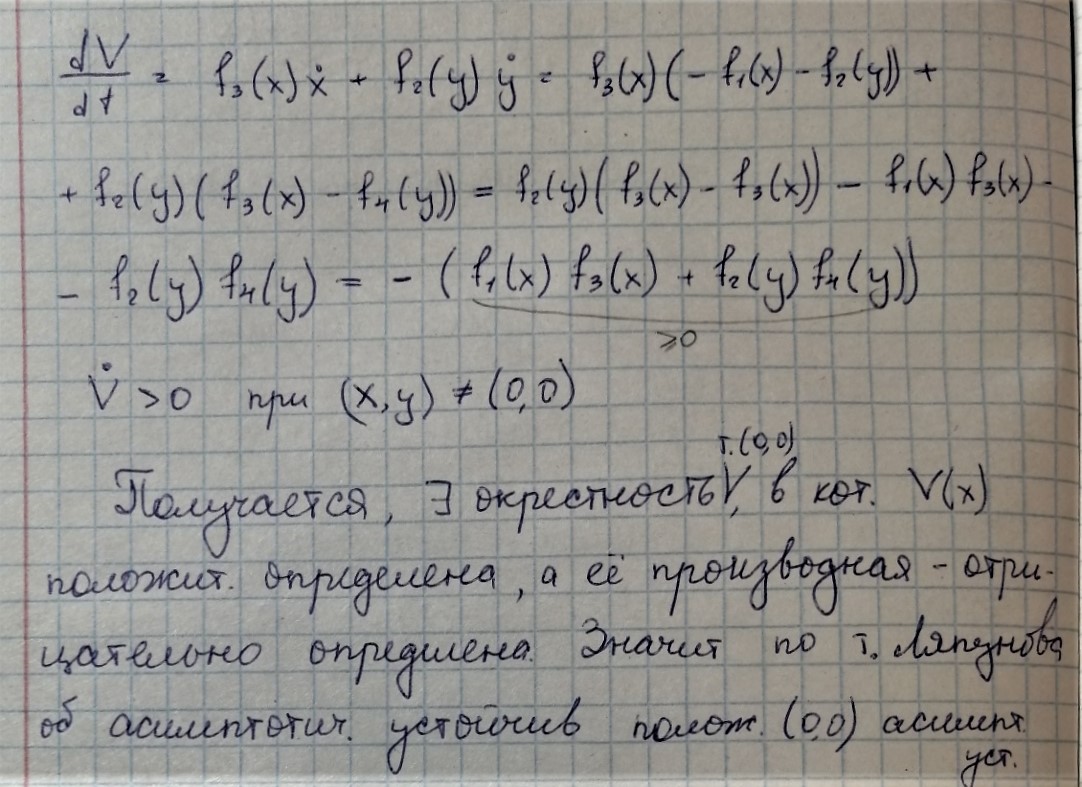 dV/dt = f₃(x)ẋ + f₂(y)ẏ = f₃(x)(-f₁(x) - f₂(y)) +
+ f₂(y)(f₃(x) - f₄(y)) = f₂(y)(f₃(x) - f₃(x)) - f₁(x) f₃(x) -
- f₂(y) f₄(y) = - (f₁(x) f₃(x) + f₂(y) f₄(y))
≥0
V̇ > 0 при (x,y) ≠ (0,0)
т.(0,0)
Получается, ∃ окрестность, в кот. V(x)
положит. определена, а её производная - отри-
цательно определена. Значит по т. Ляпунова
об асимптотич. устойчив полож. (0,0) асимпт.
уст.